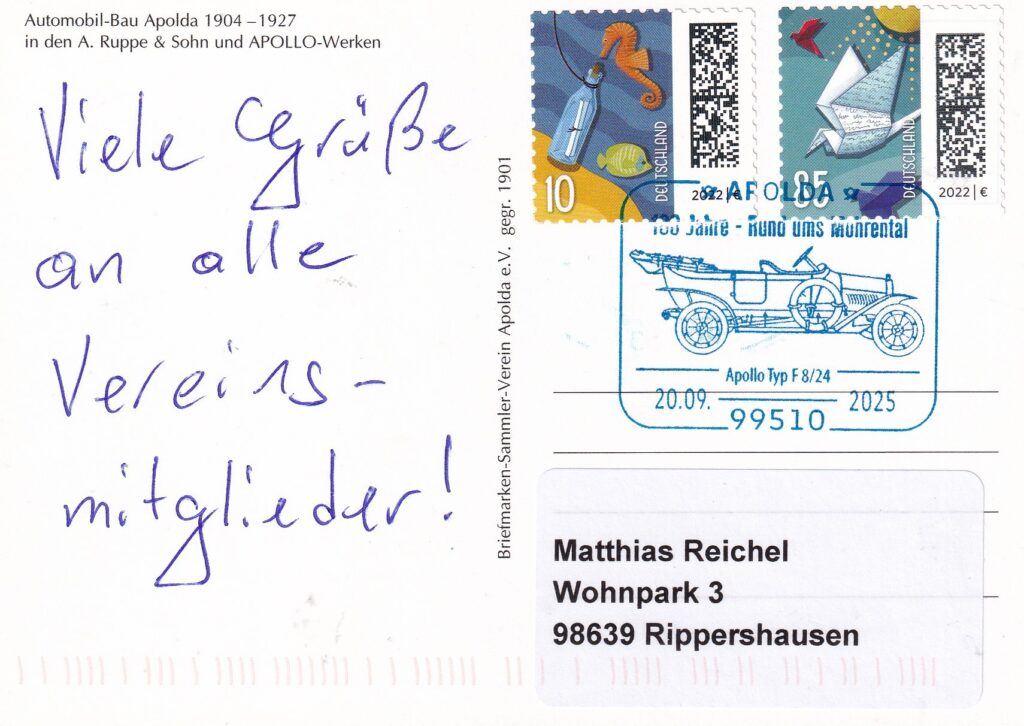 Automobil-Bau Apolda 1904 – 1927
in den A. Ruppe & Sohn und APOLLO-Werken
Viele Grüße
an alle
Vereins-
mitglieder!
Briefmarken-Sammler-Verein Apolda e.V. gegr. 1901
10
DEUTSCHLAND
2022 | €
85
DEUTSCHLAND
2022 | €
APOLDA
Jahre - Rund ums Mohrental
Apollo Typ F 8/24
20.09. 2025
99510
Matthias Reichel
Wohnpark 3
98639 Rippershausen